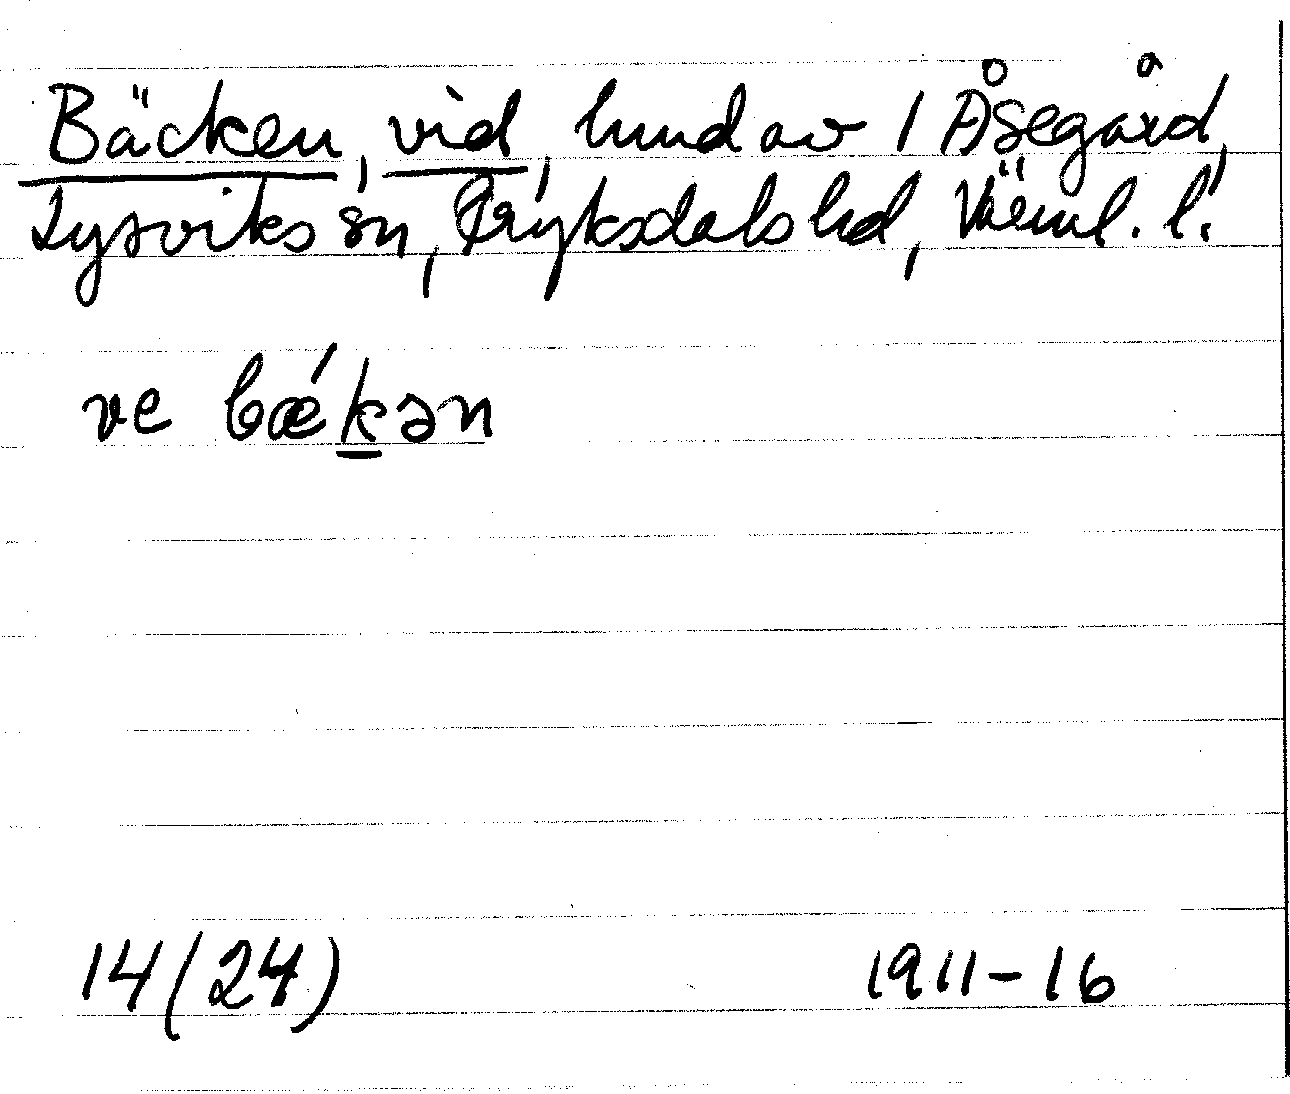 Bäcken, vid, hmd av 1 Åsegård,
Lysviks sn, Fryksdals hd, Värml. l.
ve bǽkən
14(24) 1911-16